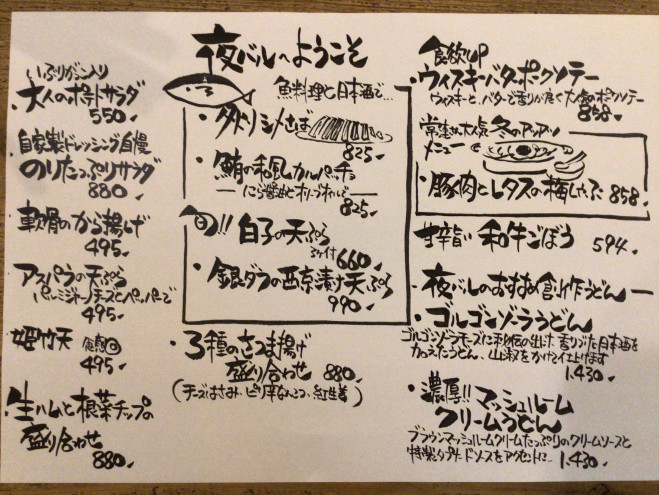 夜バルへようこそ
いぶりがっこ入り
・大人のポテトサラダ
550
自家製ドレッシング自慢
のりたっぷりサラダ
880
・軟骨のから揚げ
495
・アスパラの天ぷら
パルミジャーノチーズとペッパーで
495
・姫竹天 食感◎
495
・生ハムと根菜チップの
盛り合わせ
880
魚料理と日本酒で…
・炙りシメさば
825
・鮪の和風カルパッチョ
にら醤油とオリーブオイルで
825
旬!! 白子の天ぷら
660
・銀ダラの西京漬け天ぷら
990
・3種のさつま揚げ
盛り合わせ 880
(チーズはさみ、ピリ辛なんこつ、紅生姜)
食欲UP
・ウィスキーバターポークソテー
ウィスキーと、バターで香りが良く大人気のポークソテー
858
常連さん大人気 冬のアツアツ
メニュー
・豚肉とレタスの梅しゃぶ 858
甘辛旨い 和牛ごぼう 594
・夜バルのおすすめ創作うどん
・ゴルゴンゾーラうどん
ゴルゴンゾーラチーズに秘伝の出汁、香りづけ日本酒を
加えたうどん、山椒をかけて仕上げます
1.430
・濃厚!! マッシュルーム
クリームうどん
ブラウンマッシュルームクリームたっぷりのクリームソースと
特製タプナードソースをアクセントに… 1.430